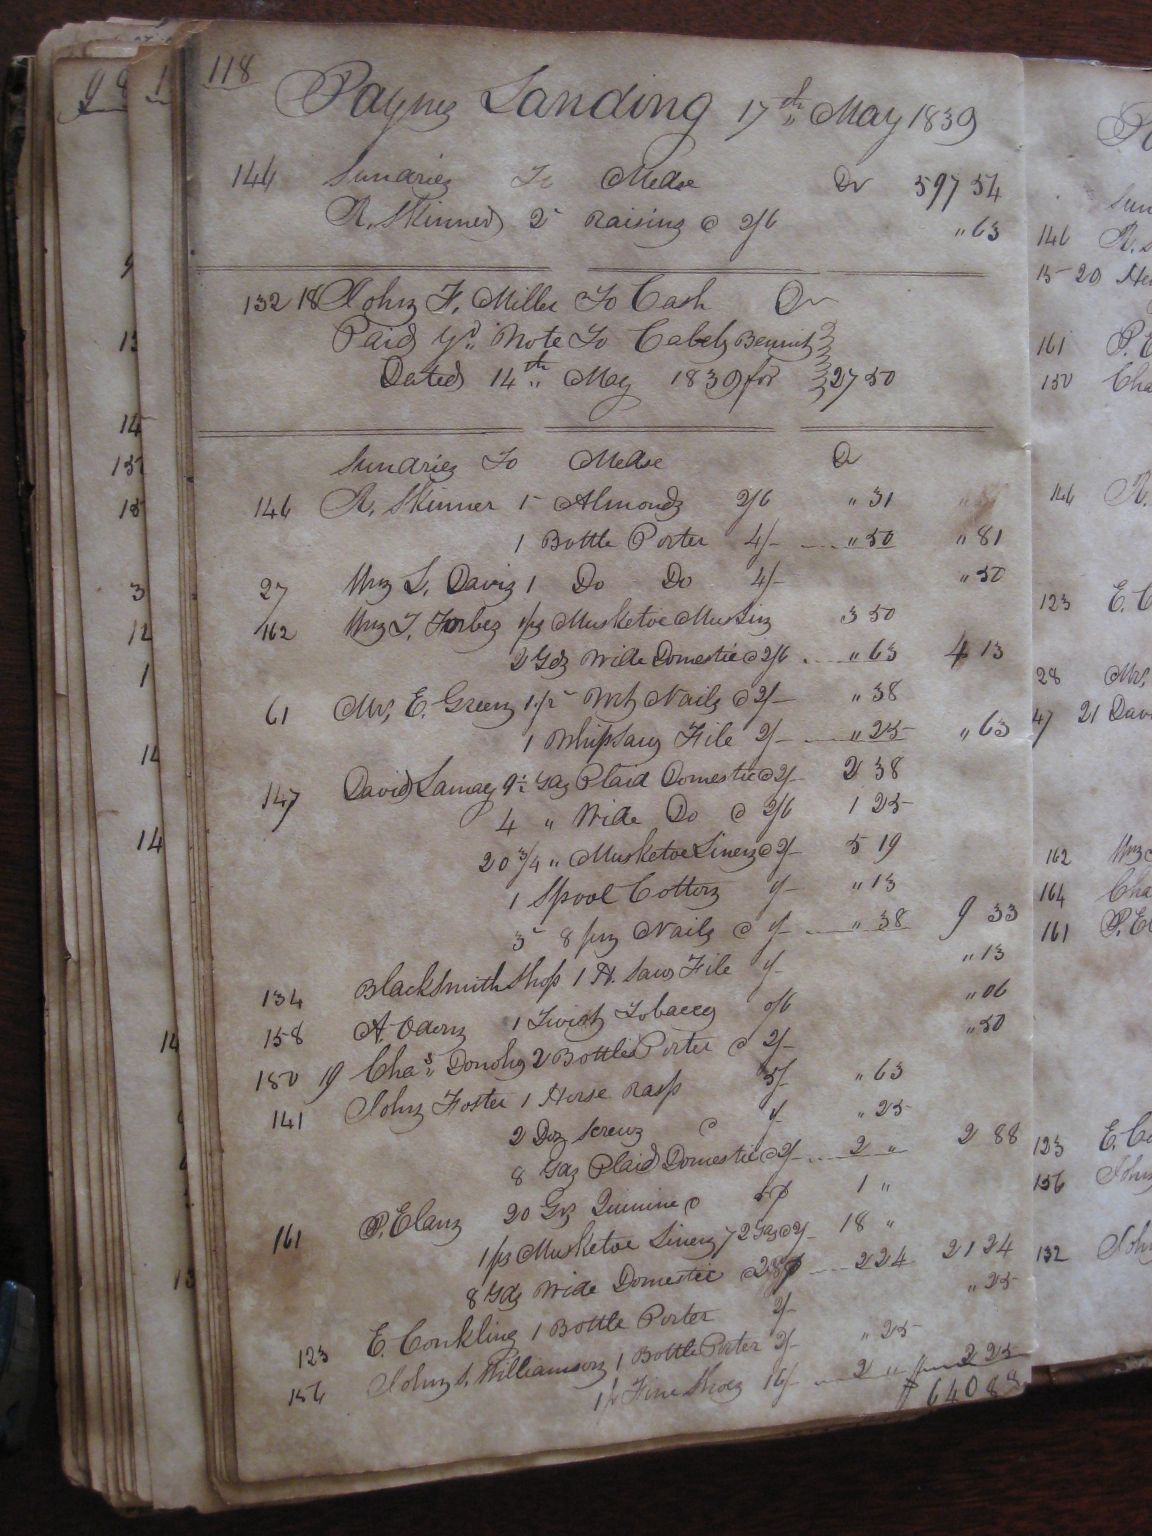 118
Paynes Landing 17th May 1839
146 Sundries To Mdse Dr 597 54
R. Skinner 2 Raisins @ 2/6 " 63
132 18 John F. Miller To Cash Dr
Paid yr. Note To Caleb Bennit
Dated 14th May 1839 for 27 50
Sundries To Mdse Dr
146 R. Skinner 1 Almonds 2/6 " 31
1 Bottle Porter 4/- " 50 " 81
27 Wm L. Davis 1 Do Do 4/- " 50
162 Wm T. Forbes 1 ps Musketoe Muslin 3 50
2 Yds Wide Domestic @ 2/6 " 63 4 13
61 Mrs E. Green Wrt Nails @ 2/- " 38
1 Whipsaw File 2/- " 25 " 63
147 David Yds Plaid Domestic @ 2/- 2 38
4 " Wide Do @ 2/6 1 25
20 3/4 " Musketoe Linen @ 2/- 5 19
1 Spool Cotton 1/- " 13
3 8 pny Nails @ 1/- " 38 9 33
134 Blacksmith Shop 1 H. Saw File 1/- " 13
158 A. Odom 1 Twist Tobacco 0/6 " 06
150 19 Chas. Donohy 2 Bottles Porter @ 2/- " 50
141 John Foster 1 Horse Rasp 5/- " 63
2 Doz Screws @ 1/- " 25
8 Yds Plaid Domestic @ 2/- 2 " 2 88
161 P. Elanz 20 Grs Quinine @ 1 "
1 ps Musketoe Linen 72 Yds @ 2/- 18 "
8 Yds Wide Domestic @ 2 24 21 24
123 E. Conkling 1 Bottle Porter 2/- " 25
156 John S. Williamson 1 Bottle Porter 2/- " 25
1 pr Fine Shoes 16/- 2 " 2 25
$ 640 88
146
15 20
161
150
146
123
28 Mrs
47 21
162
164
161
123
156
132